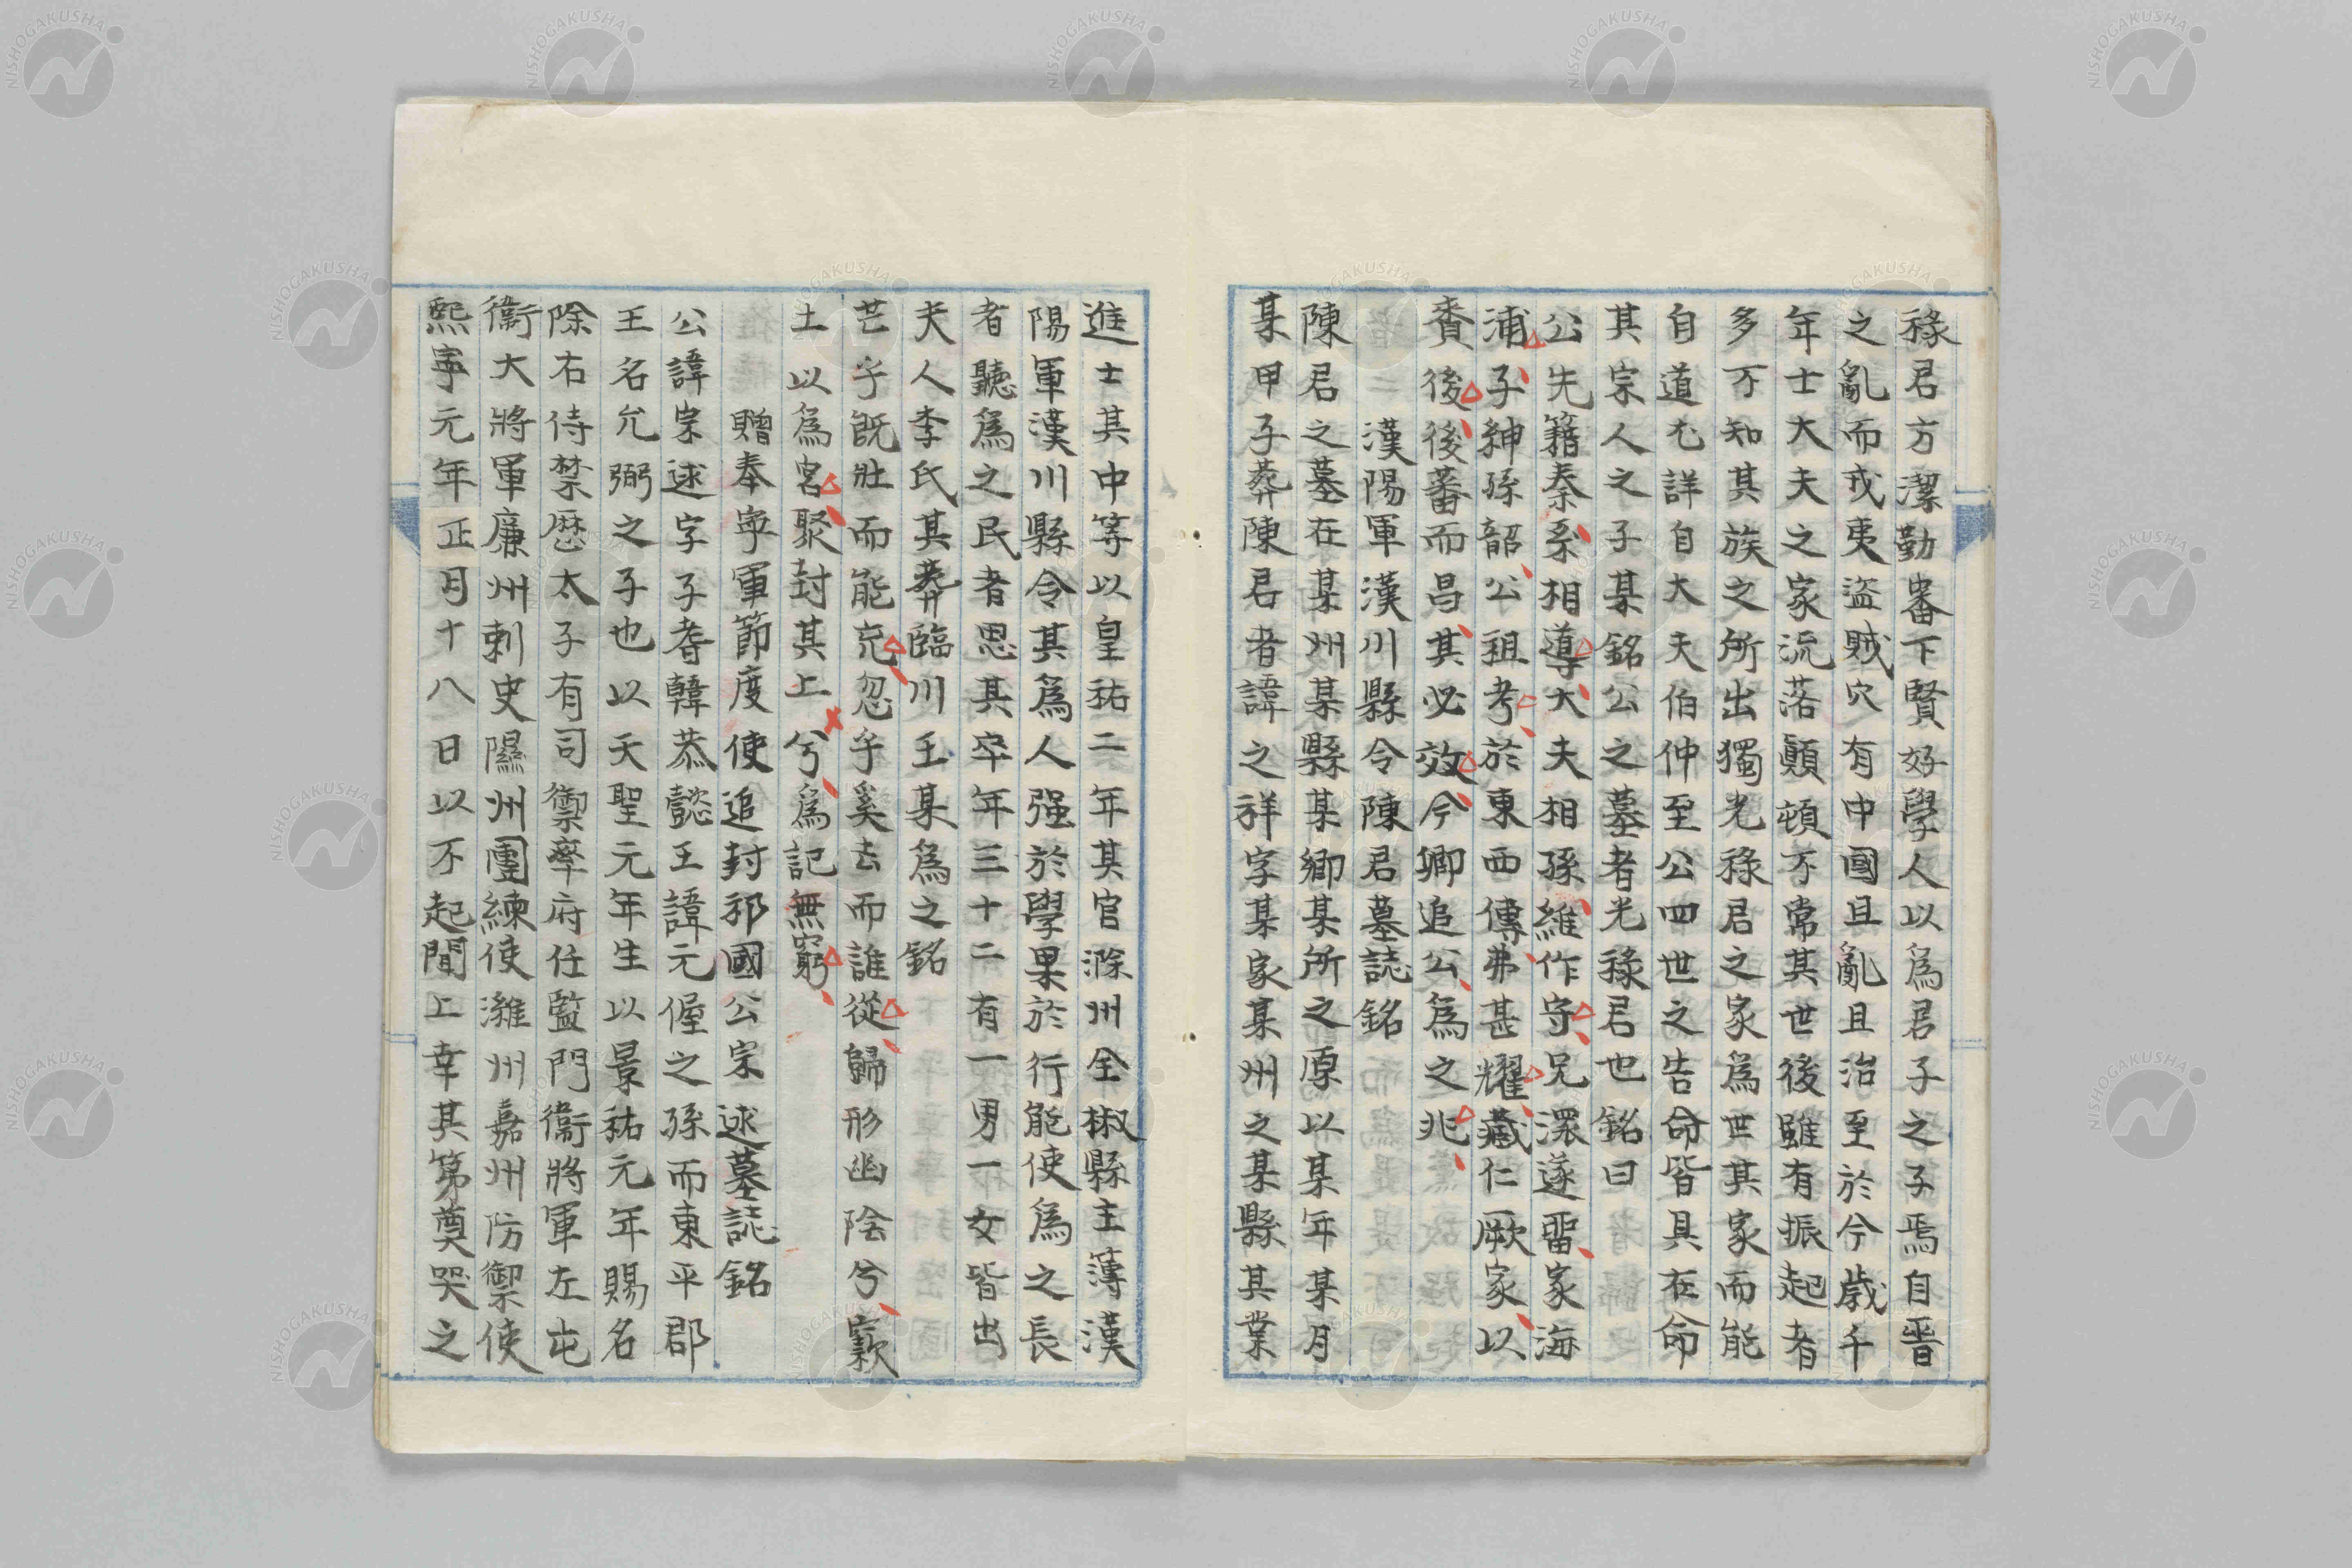 祿君方潔勤審下賢好學人以爲君子之子焉自晋
之亂而戎夷盜賊穴有中國且亂且治至於今歲千
年士大夫之家流落顛頓不常其世後雖有振起者
多不知其族之所出獨光祿君之家爲世其家而能
自道尤詳自大夫伯仲至公四世之告命皆具在命
其宗人之子某銘公之墓者光祿君也銘曰
公先籍秦系相導大夫相孫維作守兄濮遂畱家海
浦子紳孫韶公祖考於東西傳弗甚耀藏仁厥家以
賚後後蕃而昌其必效今卿追公爲之兆
漢陽軍漢川縣令陳君墓誌銘
陳君之墓在某州某縣某鄉某所之原以某年某月
某甲子葬陳君者諱之祥字某家某州之某縣其業
進士其中等以皇祐二年其官滁州全椒縣主薄漢
陽軍漢川縣令其爲人强於學果於行能使爲之長
者聽爲之民者思其卒年三十二有一男一女皆出
夫人李氏其葬臨川王某爲之銘
芒乎旣壯而能充忽乎奚去而誰從歸形幽陰兮窾
土以爲宮聚封其上兮爲記無窮
贈奉寧軍節度使追封祁國公宗述墓誌銘
公諱宗述字子耆韓恭懿王諱元偓之孫而東平郡
王名允弼之子也以天聖元年生以景祐元年賜名
除右侍禁歷太子有司禦率府任監門衞將軍左屯
衞大將軍廉州刺史隰州團練使濰州嘉州防禦使
熙寧元年正月十八日以不起聞上幸其第奠哭之
NISHOGAKUSHA